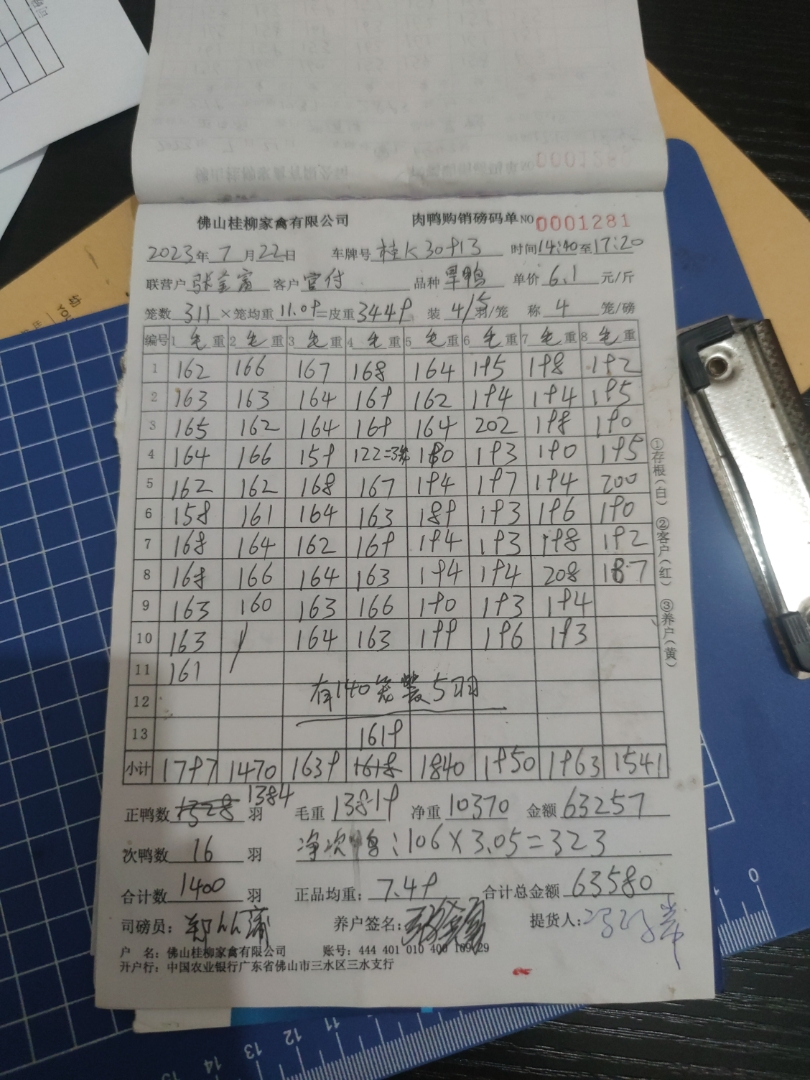 佛山桂柳家禽有限公司 肉鸭购销磅码单 NO 0001281
2023年 7月 22日 车牌号 桂K30913 时间 14:40 至 17:20
联营户 客户 官付 品种 旱鸭 单价 6.1 元/斤
笼数 311 ×笼均重 11.09 =皮重 3449 装 4/5 羽/笼 称 4 笼/磅
编号 1 毛重 2 毛重 3 毛重 4 毛重 5 毛重 6 毛重 7 毛重 8 毛重
1 162 166 167 168 164 195 198 192
2 163 163 164 169 162 194 194 195
3 165 162 164 169 164 202 198 190
4 164 166 159 122=3笼 180 193 190 195
5 162 162 168 167 194 197 194 200
6 158 161 164 163 189 193 196 190
7 168 164 162 169 194 193 198 192
8 168 166 164 163 194 194 208 187
9 163 160 163 166 190 193 194
10 163 / 164 163 199 196 193
11 161
12 有140笼装5羽
13 1619
小计 1797 1470 1639 1618 1840 1950 1963 1541
正鸭数 1328 1384 羽 毛重 13819 净重 10370 金额 63257
次鸭数 16 羽 净次鸭:106×3.05=323
合计数 1400 羽 正品均重: 7.49 合计总金额 63580
司磅员: 养户签名: 提货人:
户 名: 佛山桂柳家禽有限公司 账号: 444 401 010 400 109 29
开户行: 中国农业银行广东省佛山市三水区三水支行
①存根(白) ②客户(红) ③养户(黄)